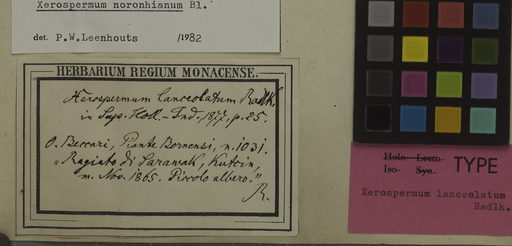 Xerospermum noronhianum Bl.
det. P.W.Leenhouts /1982
HERBARIUM REGIUM MONACENSE.
Xerospermum lanceolatum Radlk.
in Sap. Holl.-Ind. 1877, p. 25.
O. Beccari, Piante Bornensi, n. 1031.
"Ragiato di Sarawak, Kutcin,
m. Nov. 1865. Piccolo albero."
R.
Holo- Lecto-
Iso- Syn-
TYPE
Xerospermum lanceolatum
Radlk.